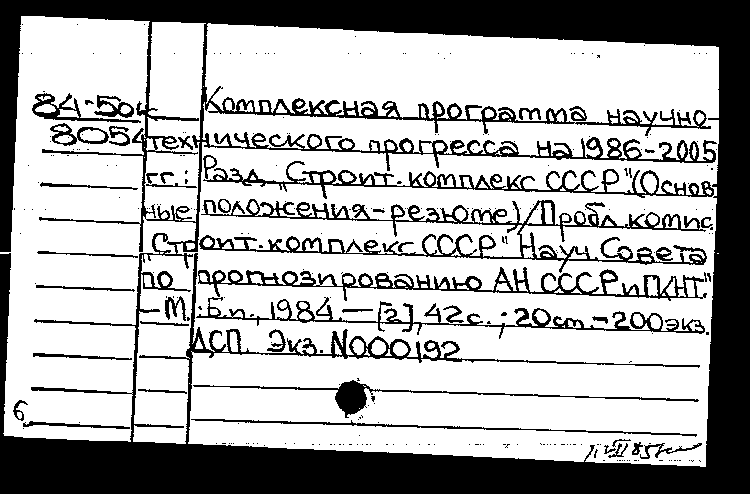 84-50к Комплексная программа научно-
8054 технического прогресса на 1986-2005
гг.: Разд. "Строит. комплекс СССР" (Основ-
ные положения-резюме) / Пробл. комис.
"Строит. комплекс СССР" Науч. Совета
по прогнозированию АН СССР и ГКНТ."
— М.: Б.и., 1984. — [2], 42 с.; 20 см. — 200 экз.
ДСП. Экз. N000192
6